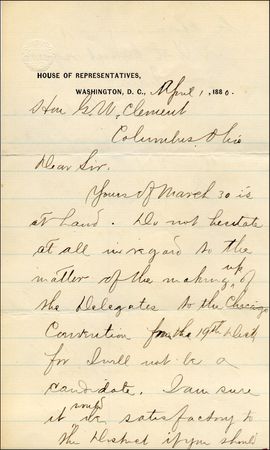 HOUSE OF REPRESENTATIVES,
WASHINGTON, D. C., April 1, 1880.
Hon G. W. Clement
Columbus Ohio
Dear Sir.
Yours of March 30 is
at hand. Do not hesitate
at all in regard to the
matter of the making up
of the Delegates to the Chicago
Convention from the 19th Dist
for I will not be a
candidate. I am sure
it would be satisfactory to
the District if you should